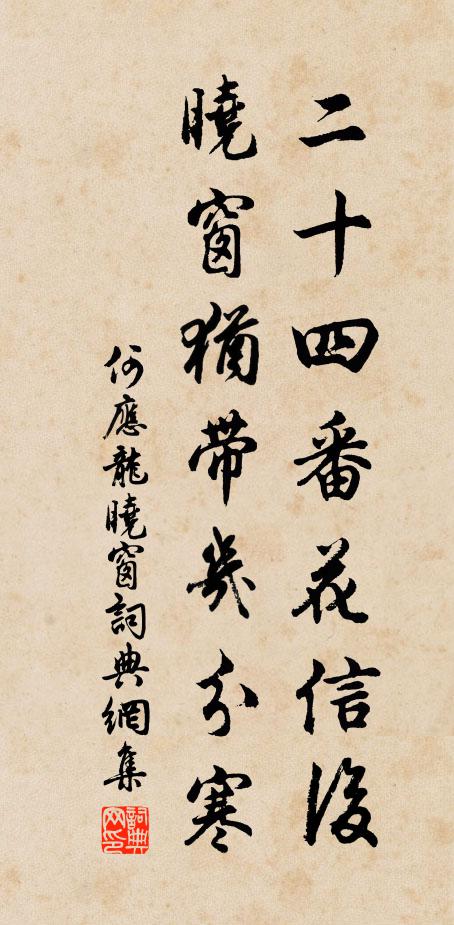 二十四番花信後
曉窗猶帶幾分寒
何應龍曉窗詞典網集
詞典网印